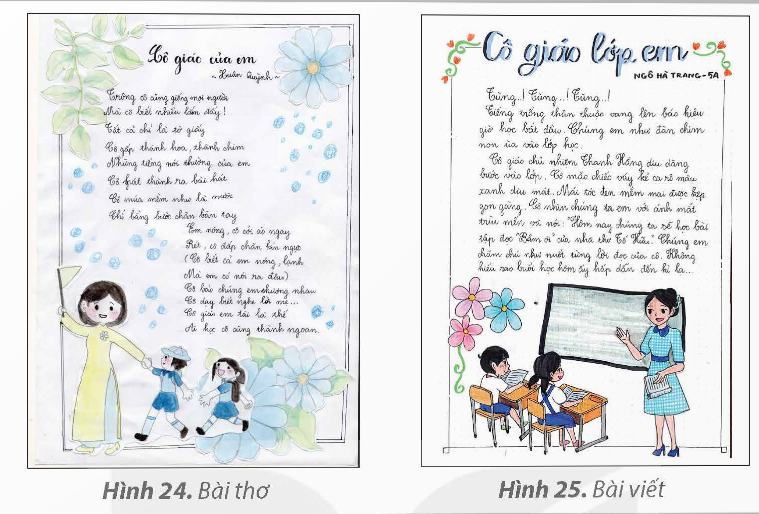 Cô giáo của em
- Xuân Quỳnh -
Trông cô cũng giống mọi người
Mà cô biết nhiều lắm đấy!
Tất cả chỉ là tờ giấy
Cô gấp thành hoa, thành chim
Những tiếng nói thường của em
Cô hát thành ra bài hát
Cô múa mềm như là nước
Chỉ bằng bước chân bàn tay
Em nóng, cô cởi áo ngay
Rét, cô đắp chăn tận ngực
(Cô biết cả em nóng, lạnh
Mà em có nói ra đâu)
Cô bảo chúng em thương nhau
Cô dạy biết nghe lời mẹ...
Cô giỏi em tài là thế
Ai học cô cũng thành ngoan.
Hình 24. Bài thơ
Cô giáo lớp em
NGÔ HÀ TRANG - 5A
Tùng..! Tùng...! Tùng...!
Tiếng trống thân thuộc vang lên báo hiệu
giờ học bắt đầu. Chúng em như đàn chim
non ùa vào lớp học.
Cô giáo chủ nhiệm Thanh Hằng dịu dàng
bước vào lớp. Cô mặc chiếc váy kẻ ca rô màu
xanh dịu mát. Mái tóc đen mềm mại được kẹp
gọn gàng. Cô nhìn chúng ta em với ánh mắt
trìu mến và nói: "Hôm nay chúng ta sẽ học bài
tập đọc "Bầm ơi" của nhà thơ Tố Hữu." Chúng em
chăm chú như nuốt từng lời đọc của cô. Không
hiểu sao buổi học hôm ấy hấp dẫn đến kì lạ...
Hình 25. Bài viết